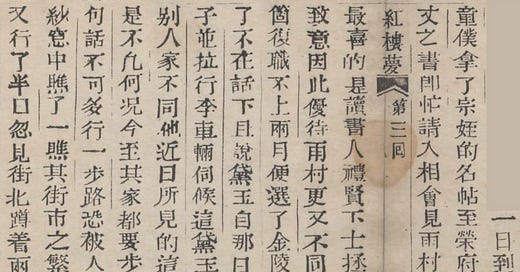 一日到
童僕拿了宗姪的名帖至榮府
丈之書即忙請入相會見雨村
紅樓夢 第三回
最喜的是讀書人禮賢下士拯
致意因此優待雨村更又不同
箇復職不上兩月便選了金陵
了不在話下且說黛玉自那日
子並拉行李車輛伺候這黛玉
別人家不同他近日所見的這
是不凢何况今至其家都要步
何話不可多行一步路恐被人
紗窓中瞧了一瞧其街市之繁
又行了半日忽見街北蹲着兩